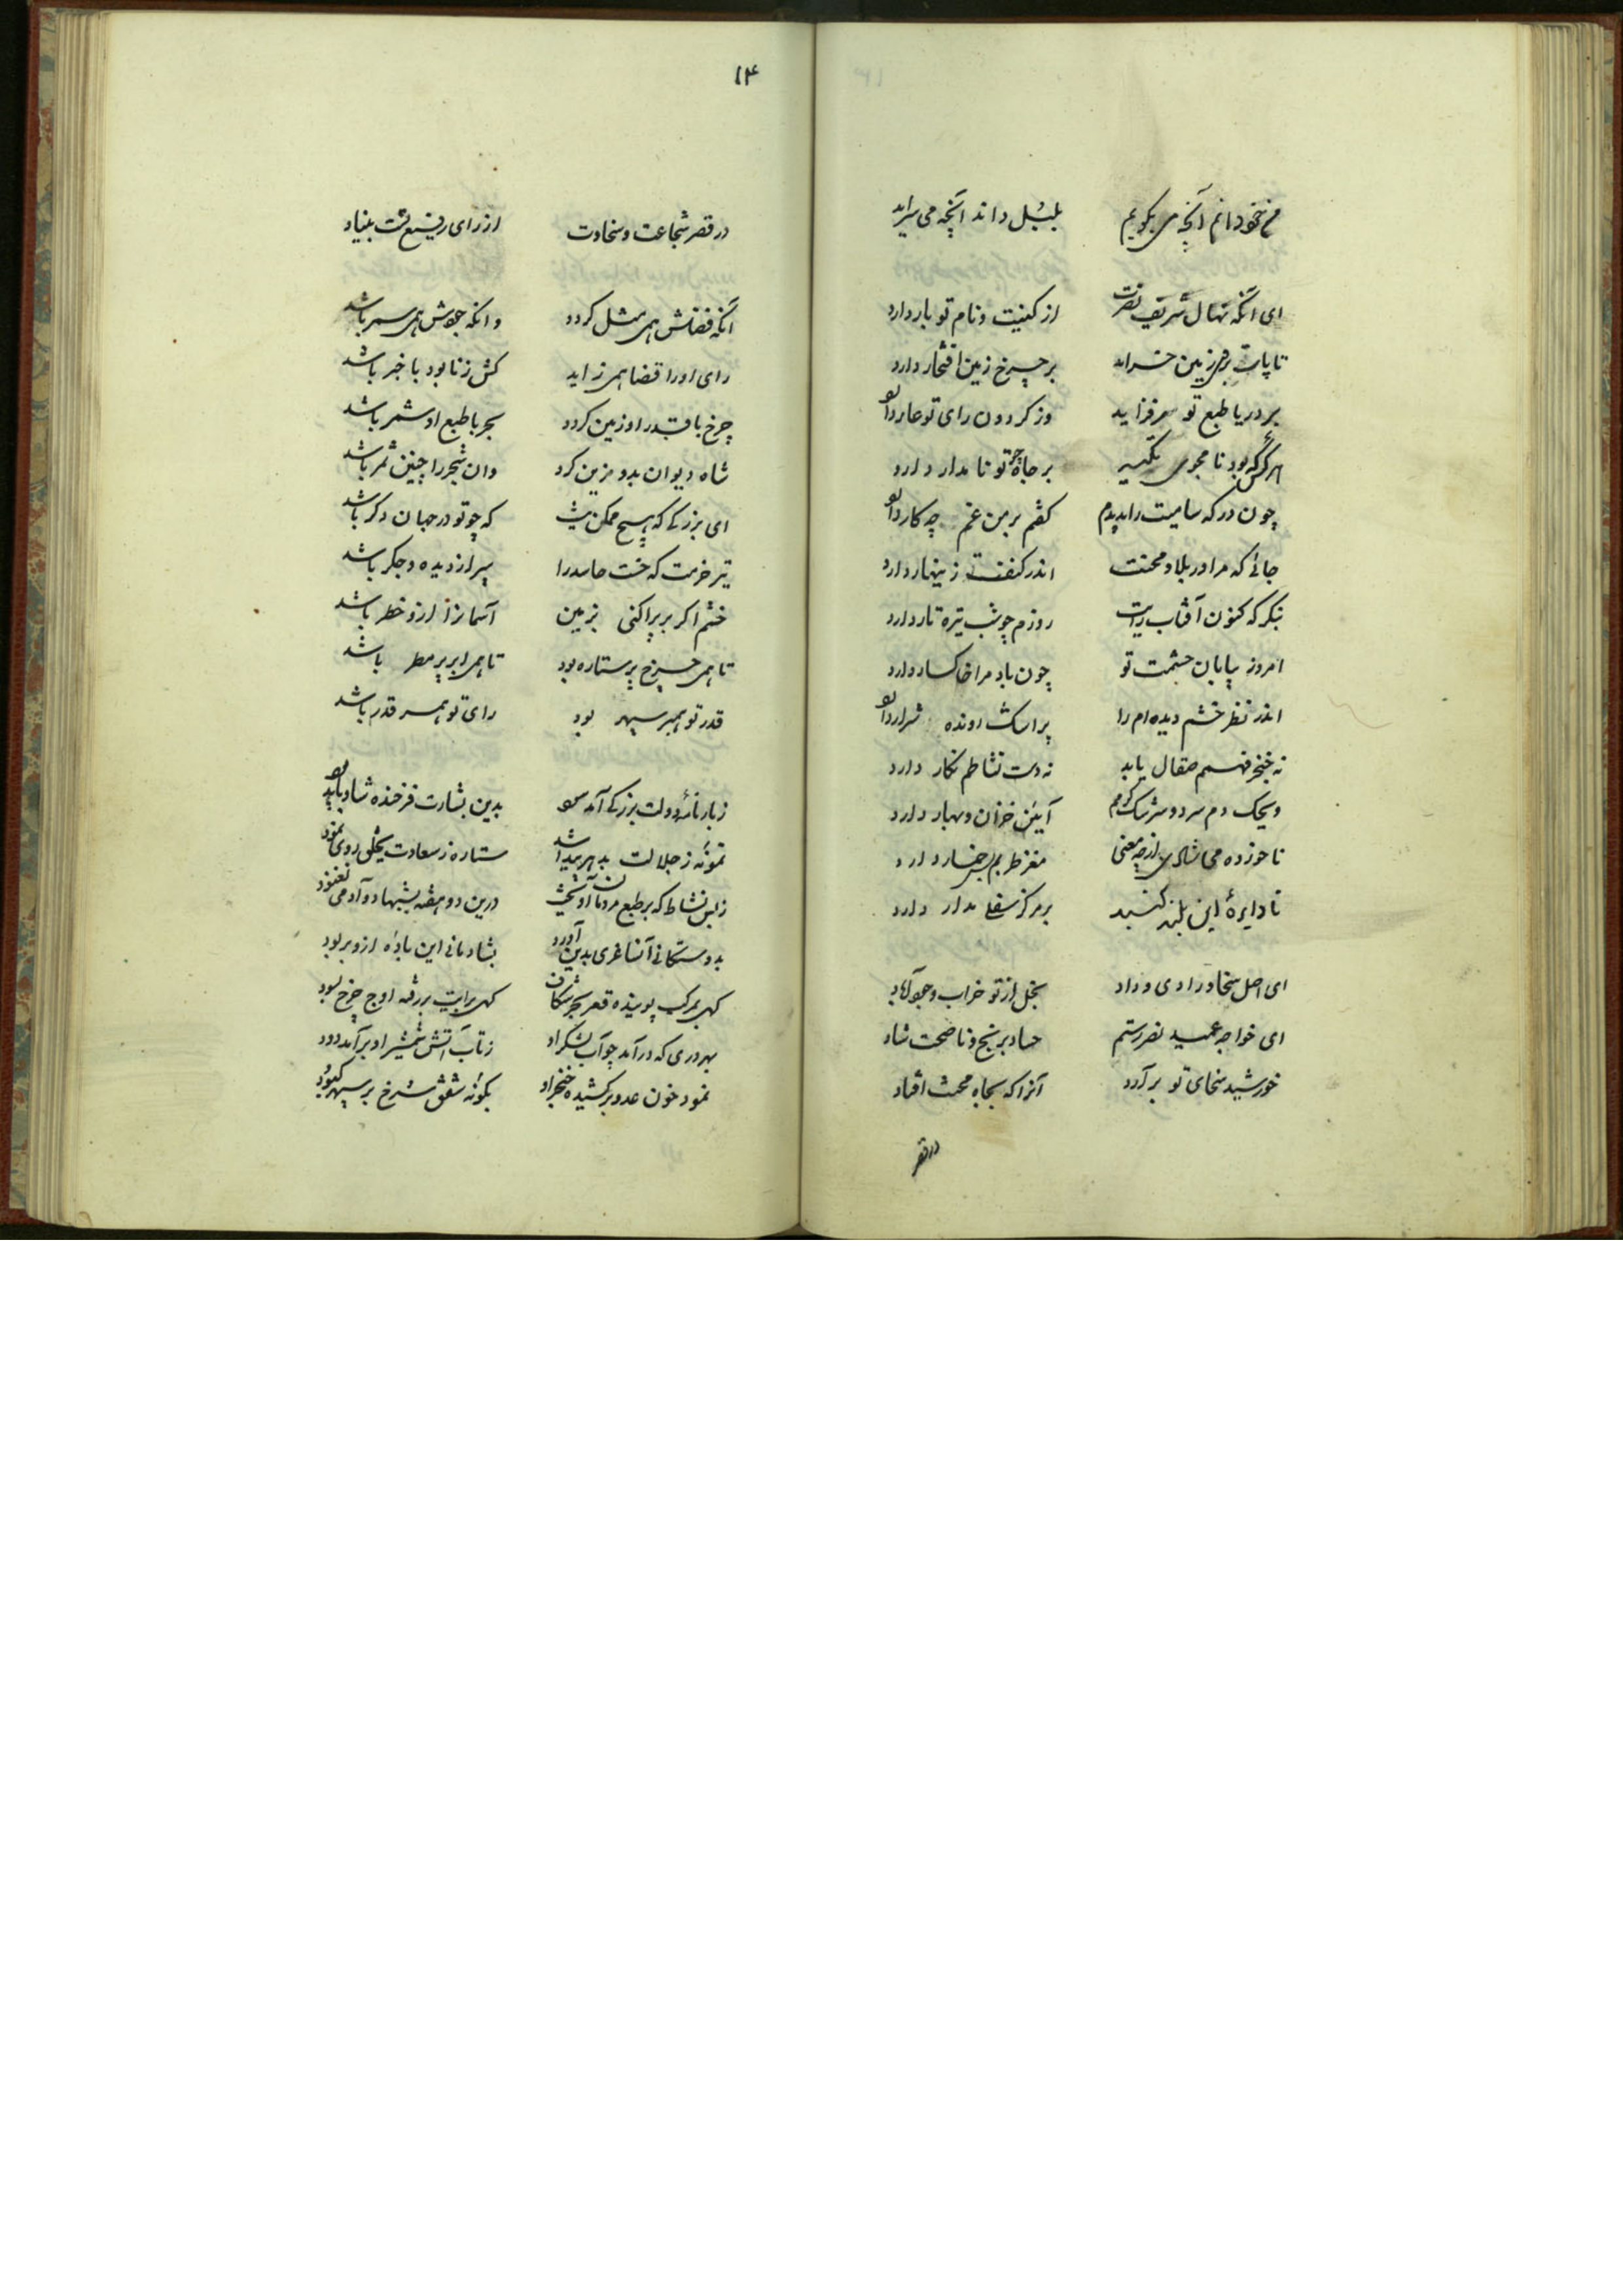 من خود دانم آنچه می بگویم بلبل داند آنچه می سراید
ای آنکه نهال شریف نصرت از کنیت و نام تو بار دارد
تا پات برهمی زمین خراند بر چرخ زمین افتخار دارد
بر دریا طبع تو سرفزاید وز کردون رای تو عار دارد
بر جاه تو نامدار دارد
چون درکه سامیت را بدیدم کفتم بر من غم چه کار دارد
جائی که مرا در بلا و محنت اندر کنفت زینهار دارد
بنکر که کنون آفتاب رایت روزم چو شب تیره تار دارد
امروز بیابان حشمت تو چون باد مرا خاکسار دارد
اندر نظر خشم دیده ام را پر اشک شرار دارد
نه خنجر فهمم صقال یابد نه دست نشاطم نکار دارد
ویحک دم سرد و سرشک کرمم آیین خزان و بهار دارد
ناخورده می شادی از چه معنی مغز طربم خمار دارد
تا دایره این بلند کنبد بر مرکز سفلی مدار دارد
ای اصل سخا و رادی و داد بخل از تو خراب و جود آباد
ای خواجه عمید نصر رستم حساد برنج و ناصحت شاد
خورشید سخای تو برآرد آنرا که بچاه محنت افتاد
در قصر
۱۴
در قصر شجاعت و سخاوت از رای رفیع تست بنیاد
آنکه فضلش همی مثل کردد وانکه جودش همی سمر باشد
رای او را قضا همی زاید کش زنا بود با خبر باشد
چرخ با قدر او زمین کردد بحر با طبع او شمر باشد
شاه دیوان بدو مزین کرد وان شجر را چنین ثمر باشد
ای بزرکی که هیچ ممکن نیست که چو تو در جهان دکر باشد
تیر خرمت که خست حاسد را سپر از دیده و جکر باشد
خشم اکر بر پراکنی بزمین آسمانرا ازو خطر باشد
تا همی چرخ پر ستاره بود تا همی ابر پر مطر باشد
قدر تو همبر سپهر بود رای تو همسر قدر باشد
زبارنامه دولت بزرکی آمد سود بدین بشارت فرخنده شاد باید بود
نمونه ز جلالت بدهر پیدا شد ستاره ز سعادت بخلق روی نمود
ز بس نشاط که بر طبع مردمان آویخت درین دو هفته بشبها دو آدمی نغنود
بدوستکانی آنشاعری بدین آورد بشادمانی این باده ازو بربود
کهی بمرکب پوینده قعر بحر شکافت کهی برایت بررفته اوج چرخ بسود
بهر دری که درآمد چو آب لشکر او ز تاب آتش شمشیر او برآمد دود
نمود خون عدو برکشیده خنجر او بکونه شفق سرخ بر سپهر کبود